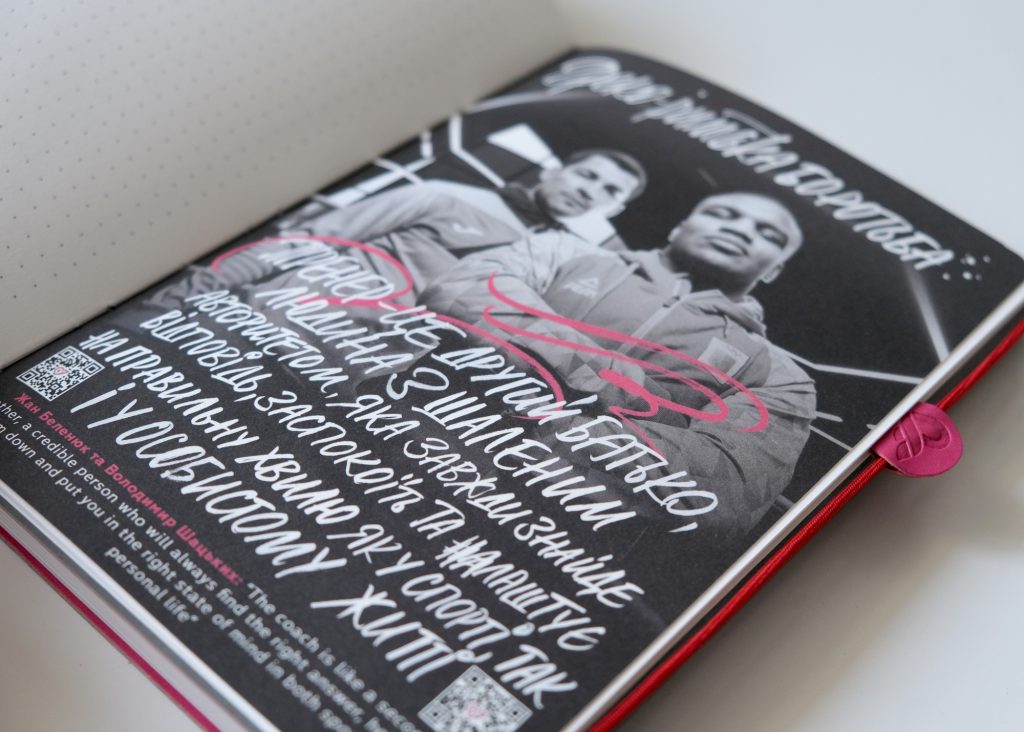 Греко-римська боротьба
ТРЕНЕР – ЦЕ ДРУГИЙ БАТЬКО,
ЛЮДИНА З ШАЛЕНИМ
АВТОРИТЕТОМ, ЯКА ЗАВЖДИ ЗНАЙДЕ
ВІДПОВІДЬ, ЗАСПОКОЇТЬ ТА НАЛАШТУЄ
НА ПРАВИЛЬНУ ХВИЛЮ ЯК У СПОРТІ, ТАК
І У ОСОБИСТОМУ ЖИТТІ
Жан Беленюк та Володимир Шацьких: "The coach is like a second
father, a credible person who will always find the right answer,
down and put you in the right state of mind in both
personal life"